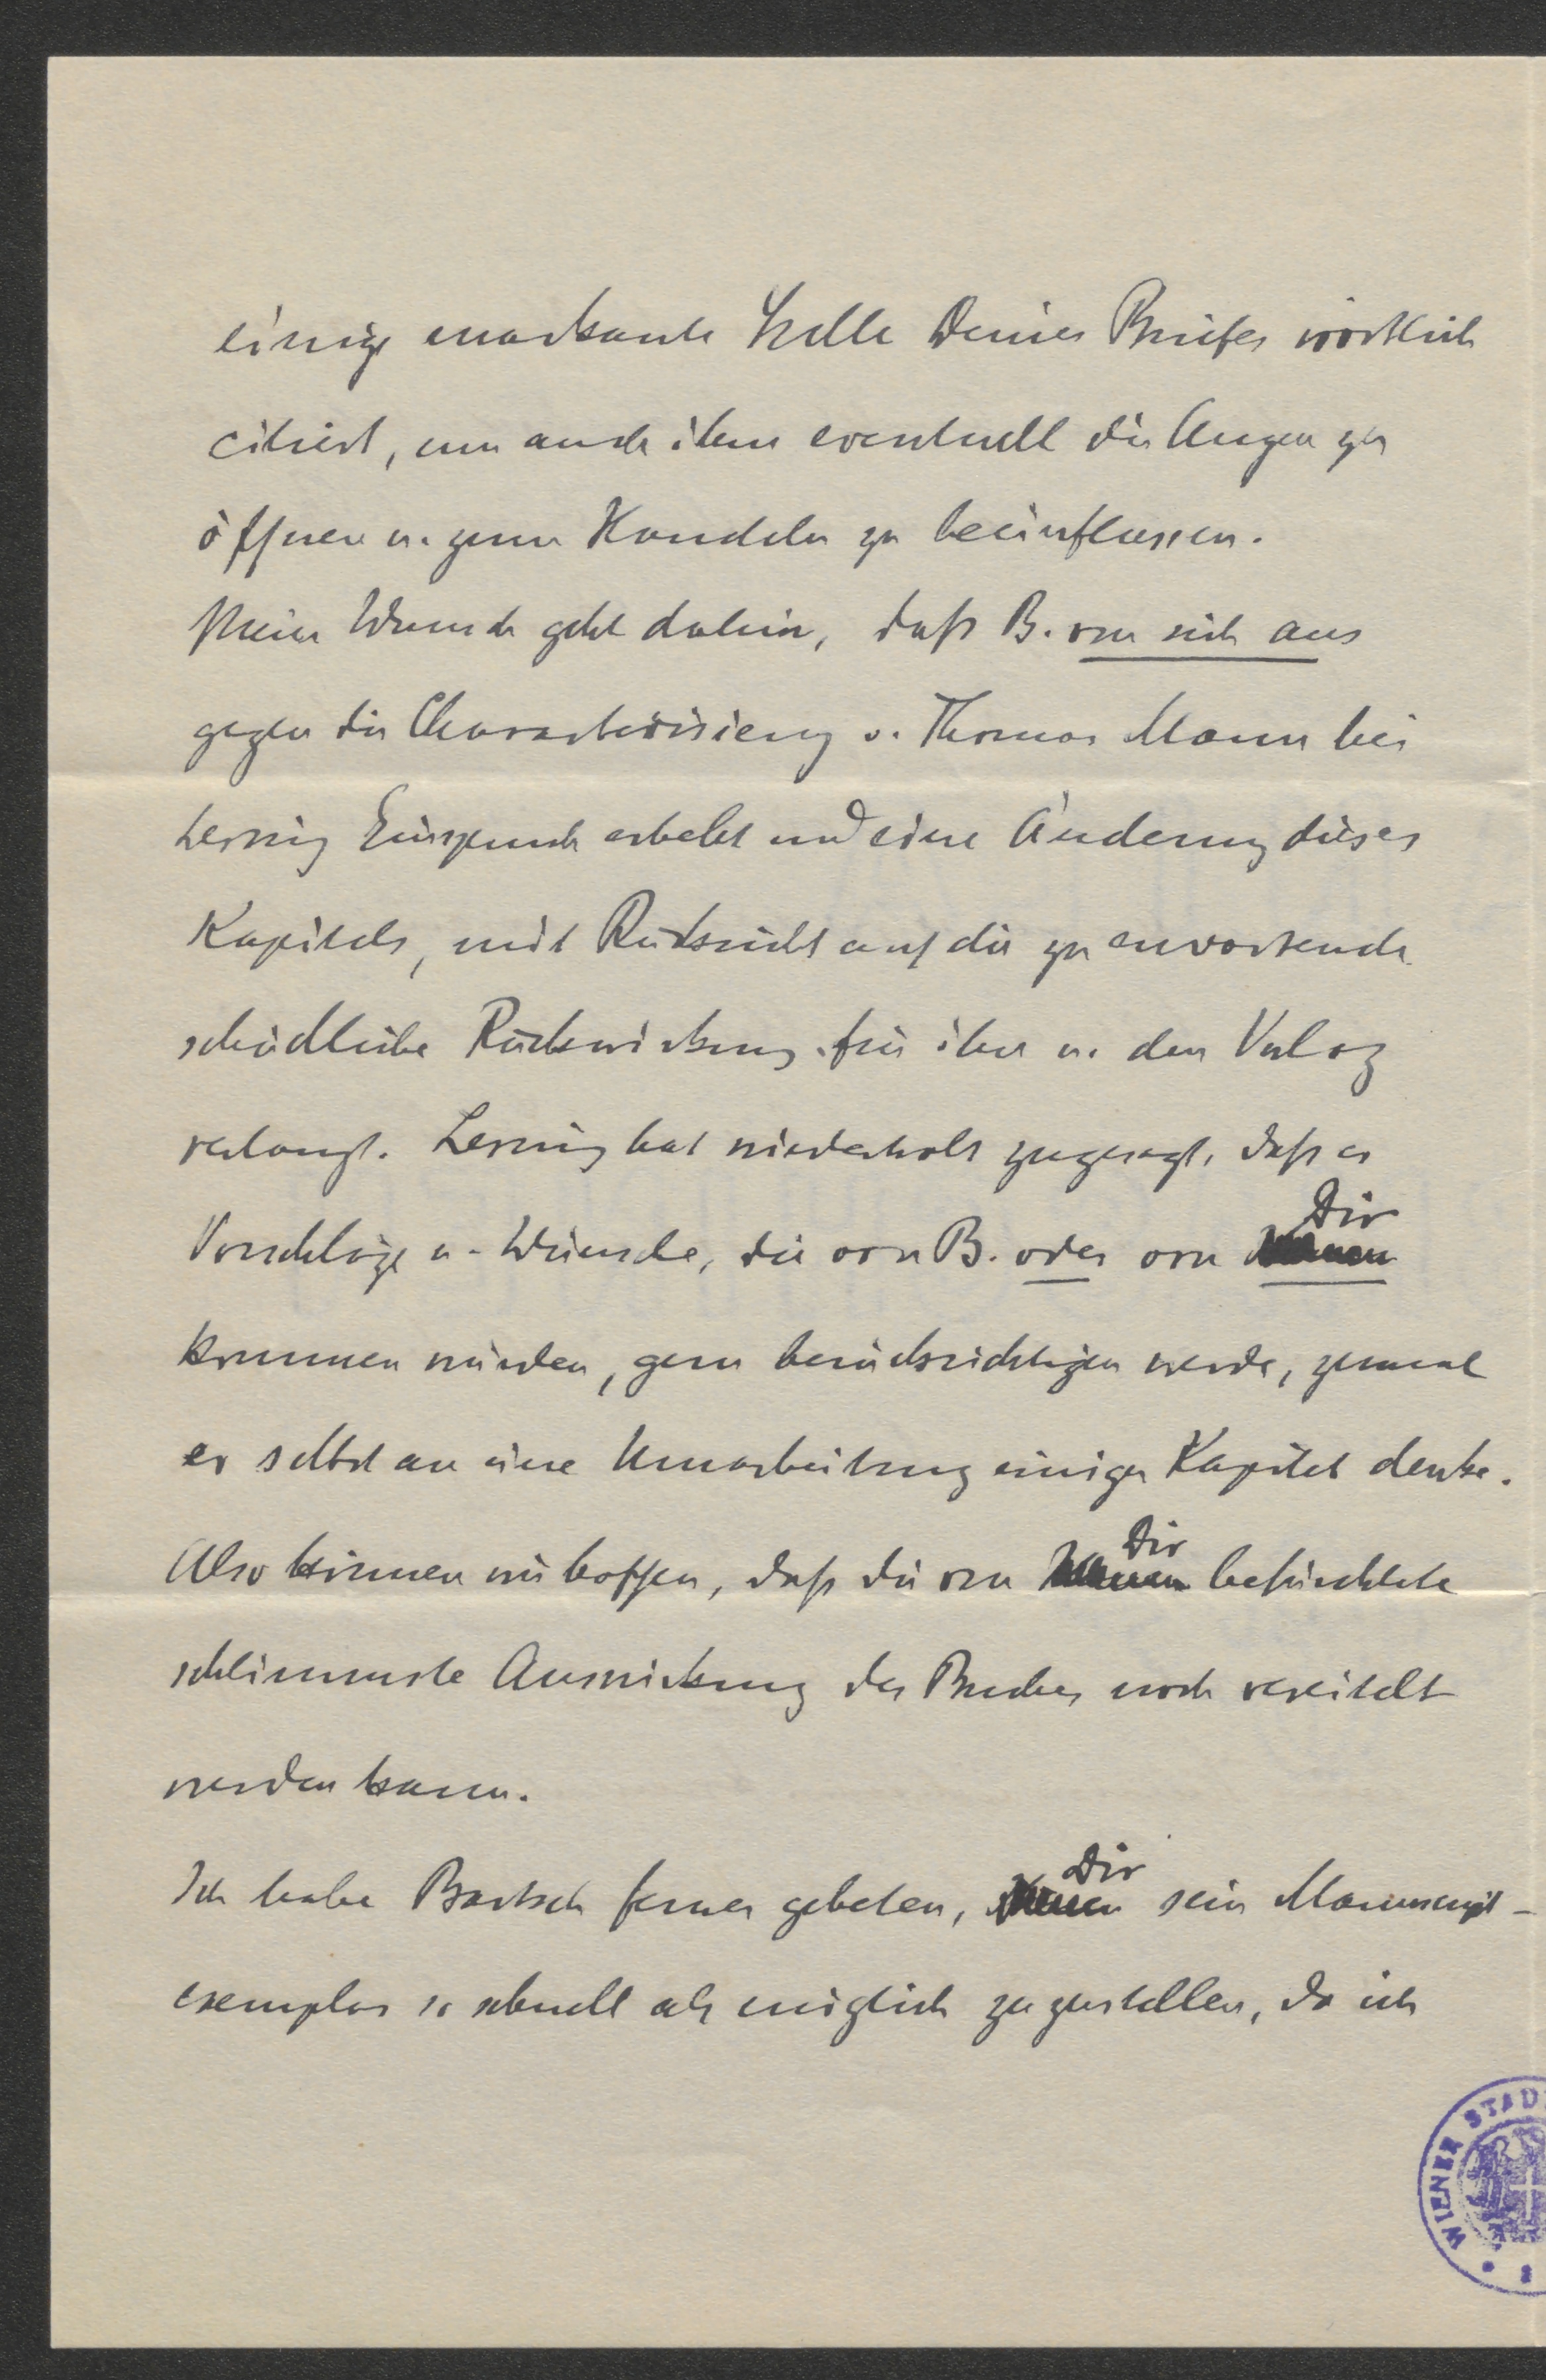 einige markante Stelle Deines Briefes wörtlich
citiert, um auch ihm eventuell die Augen zu
öffnen u. zum Handeln zu beeinflussen.
Mein Wunsch geht dahin, daß B. von sich aus
gegen die Charakterisierung v. Thomas Mann bei
Lessing Einspruch erhebt und eine Änderung dieses
Kapitels, mit Rücksicht auf die zu erwartende
schädliche Rückwirkung für ihn u. den Verlag
verlangt. Lessing hat wiederholt zugesagt, daß er
Vorschläge u. Wünsche, die von B. oder von Dir
kommen würden, gern berücksichtigen werde, zumal
er selbst an eine Umarbeitung einiger Kapitel denke.
Also können wir hoffen, daß die von Dir befürchtete
schlimmste Auswirkung des Buches noch vereitelt
werden kann.
Ich habe Bartsch ferner gebeten, Dir sein Manuscript-
exemplar so schnell als möglich zuzustellen, da ich
WIENER STAD